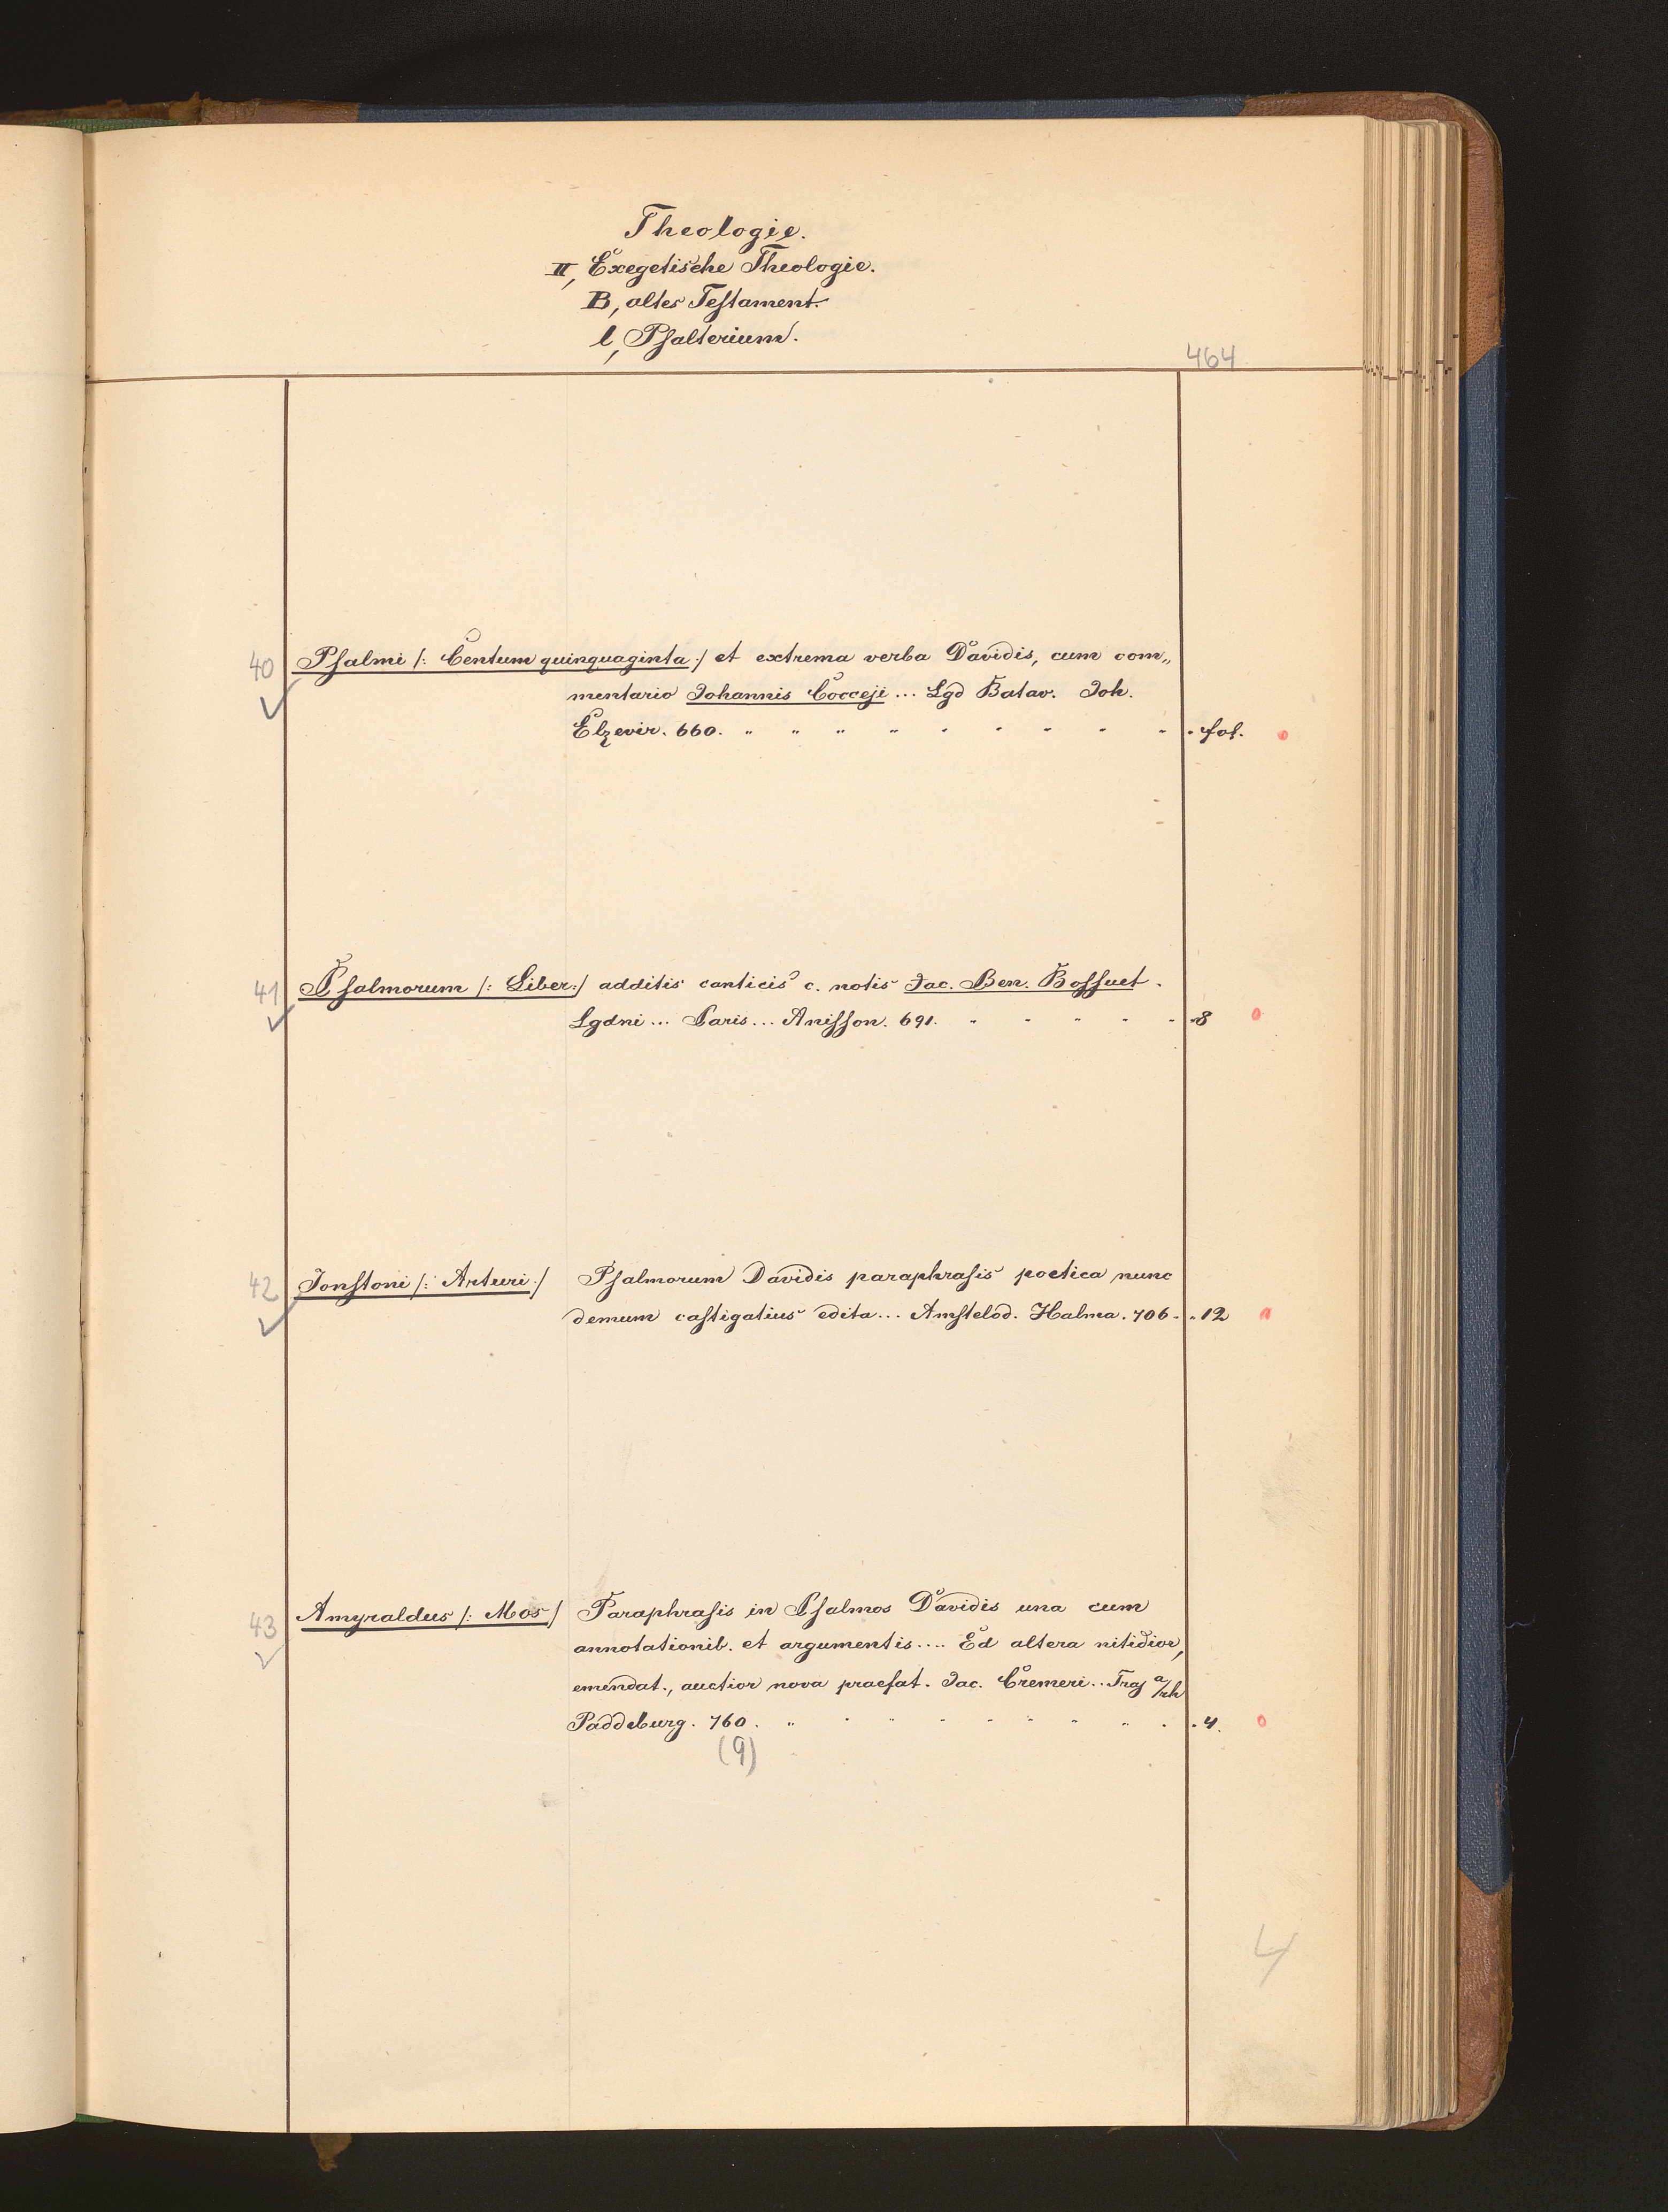 Theologie.
II, Exegetische Theologie.
B, altes Testament.
l, Psalterium.
464
40 Psalmi /: Centum quinquaginta :/ et extrema verba Davidis, cum com„
mentario Johannis Cocceji ... Lgd Batav. Joh.
Elzevir. 660. " " " " " " " " " " fol. o
41 Psalmorum /: Liber :/ additis canticis c. notis Jac. Ben. Bossuet.
Lgdni ... Paris ... Anisson. 691. " " " " " " 8 o
42 Jonstoni /: Arturi :/ Psalmorum Davidis paraphrasis poetica nunc
demum castigatius edita ... Amstelod. Halma. 706 " " 12
43 Amyraldus /: Mos / Paraphrasis in Psalmos Davidis una cum
annotationib. et argumentis .... Ed altera nitidior,
emendat., auctior nova praefat. Jac. Cremeri .. Traj a/rh
Paddeburg. 760. " " " " " " " " " " 4. o
(9)
4